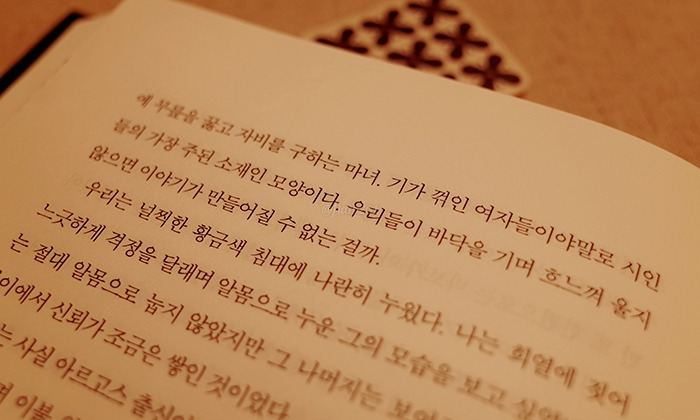 에 무릎을 꿇고 자비를 구하는 마녀. 기가 꺾인 여자들이야말로 시인
들의 가장 주된 소재인 모양이다. 우리들이 바닥을 기며 흐느껴 울지
않으면 이야기가 만들어질 수 없는 걸까.
우리는 널찍한 황금색 침대에 나란히 누웠다. 나는 희열에 젖어
느긋하게 격정을 달래며 알몸으로 누운 그의 모습을 보고 싶었
는 절대 알몸으로 눕지 않았지만 그 나머지는 보여
이에서 신뢰가 조금은 쌓인 것이었다.
는 사실 아르고스 출신이
며 이불